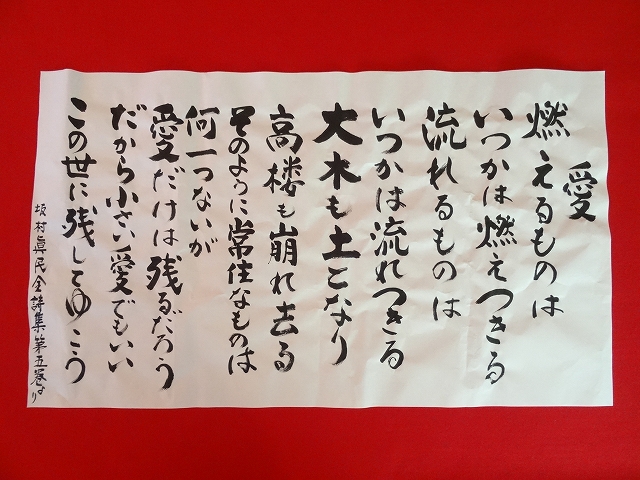 愛
燃えるものは
いつかは燃えつきる
流れるものは
いつかは流れつきる
大木も土になり
高楼も崩れ去る
そのように常住なものは
何一つないが
愛だけは残るだろう
だから小さい愛でもいい
この世に残してゆこう
坂村眞民全詩集第五巻より